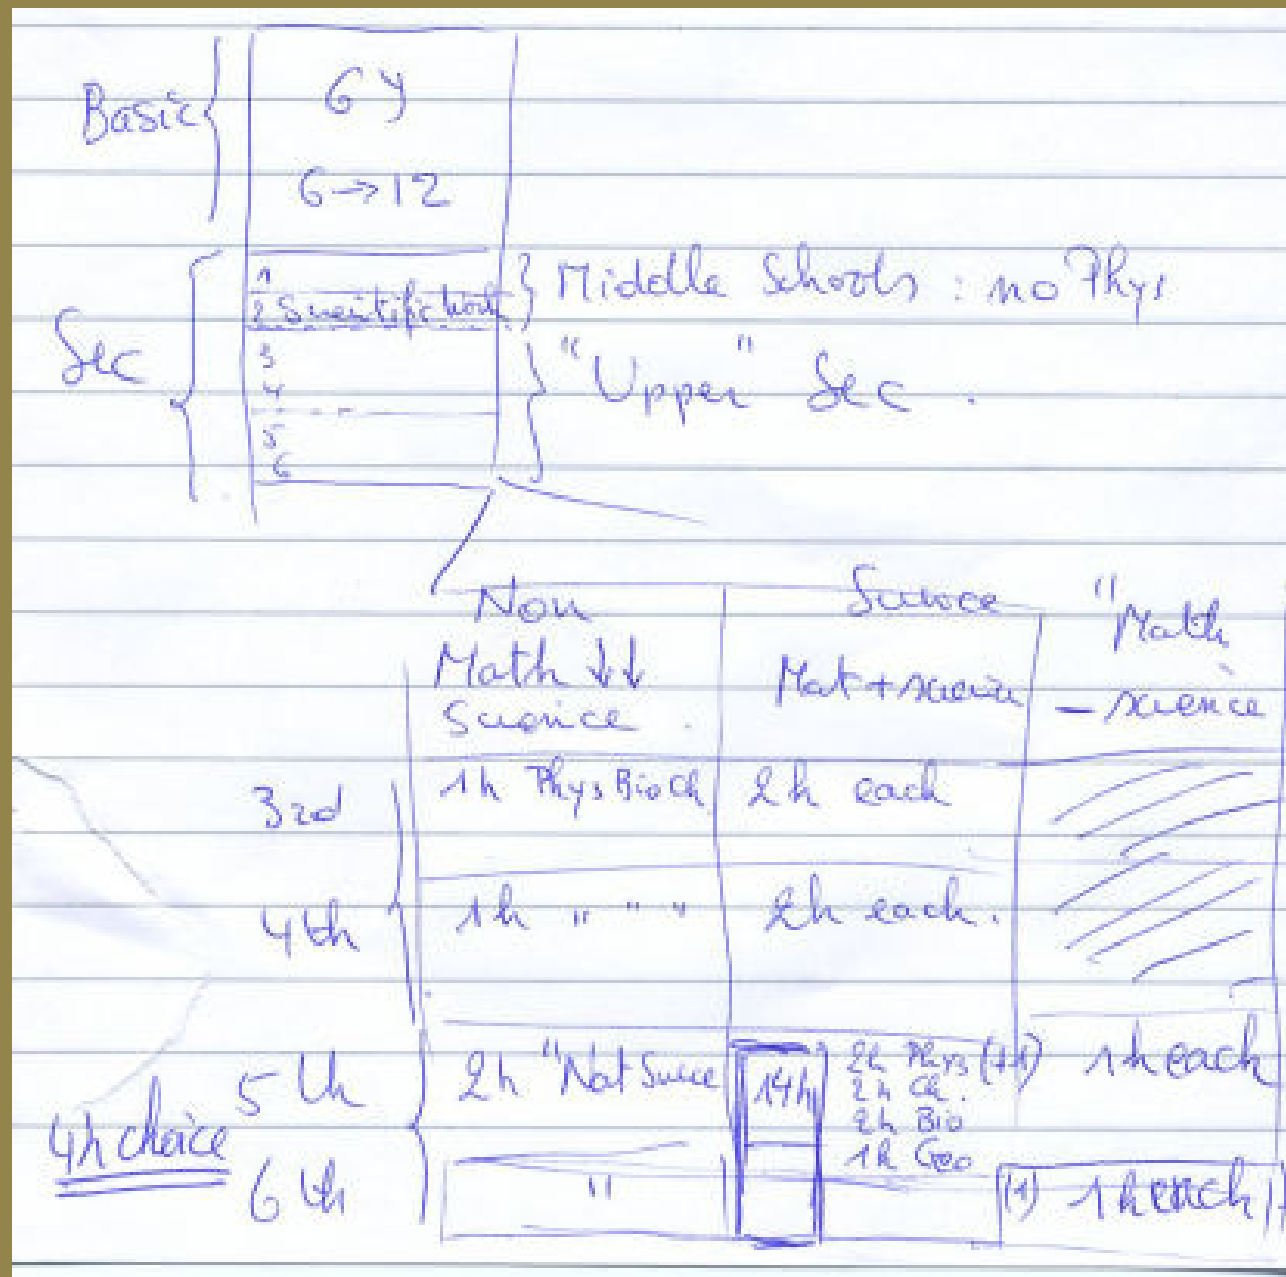 Basic
6 y
6→12
Sec
1
2 Scientific Work
} Middle Schools : no Phys
3
4
5
6
"Upper" Sec.
Non
Math ↓↓
Science.
Science
Mat + science
"Math
- science
3rd
1h Phys Bio Ch
2h each
4th
1h " " "
2h each.
5th
2h "Nat
14h
2h Phys (+1)
2h Ch.
2h Bio
1h Geo
1h each
4h choice
6th
"
(1) 1h each